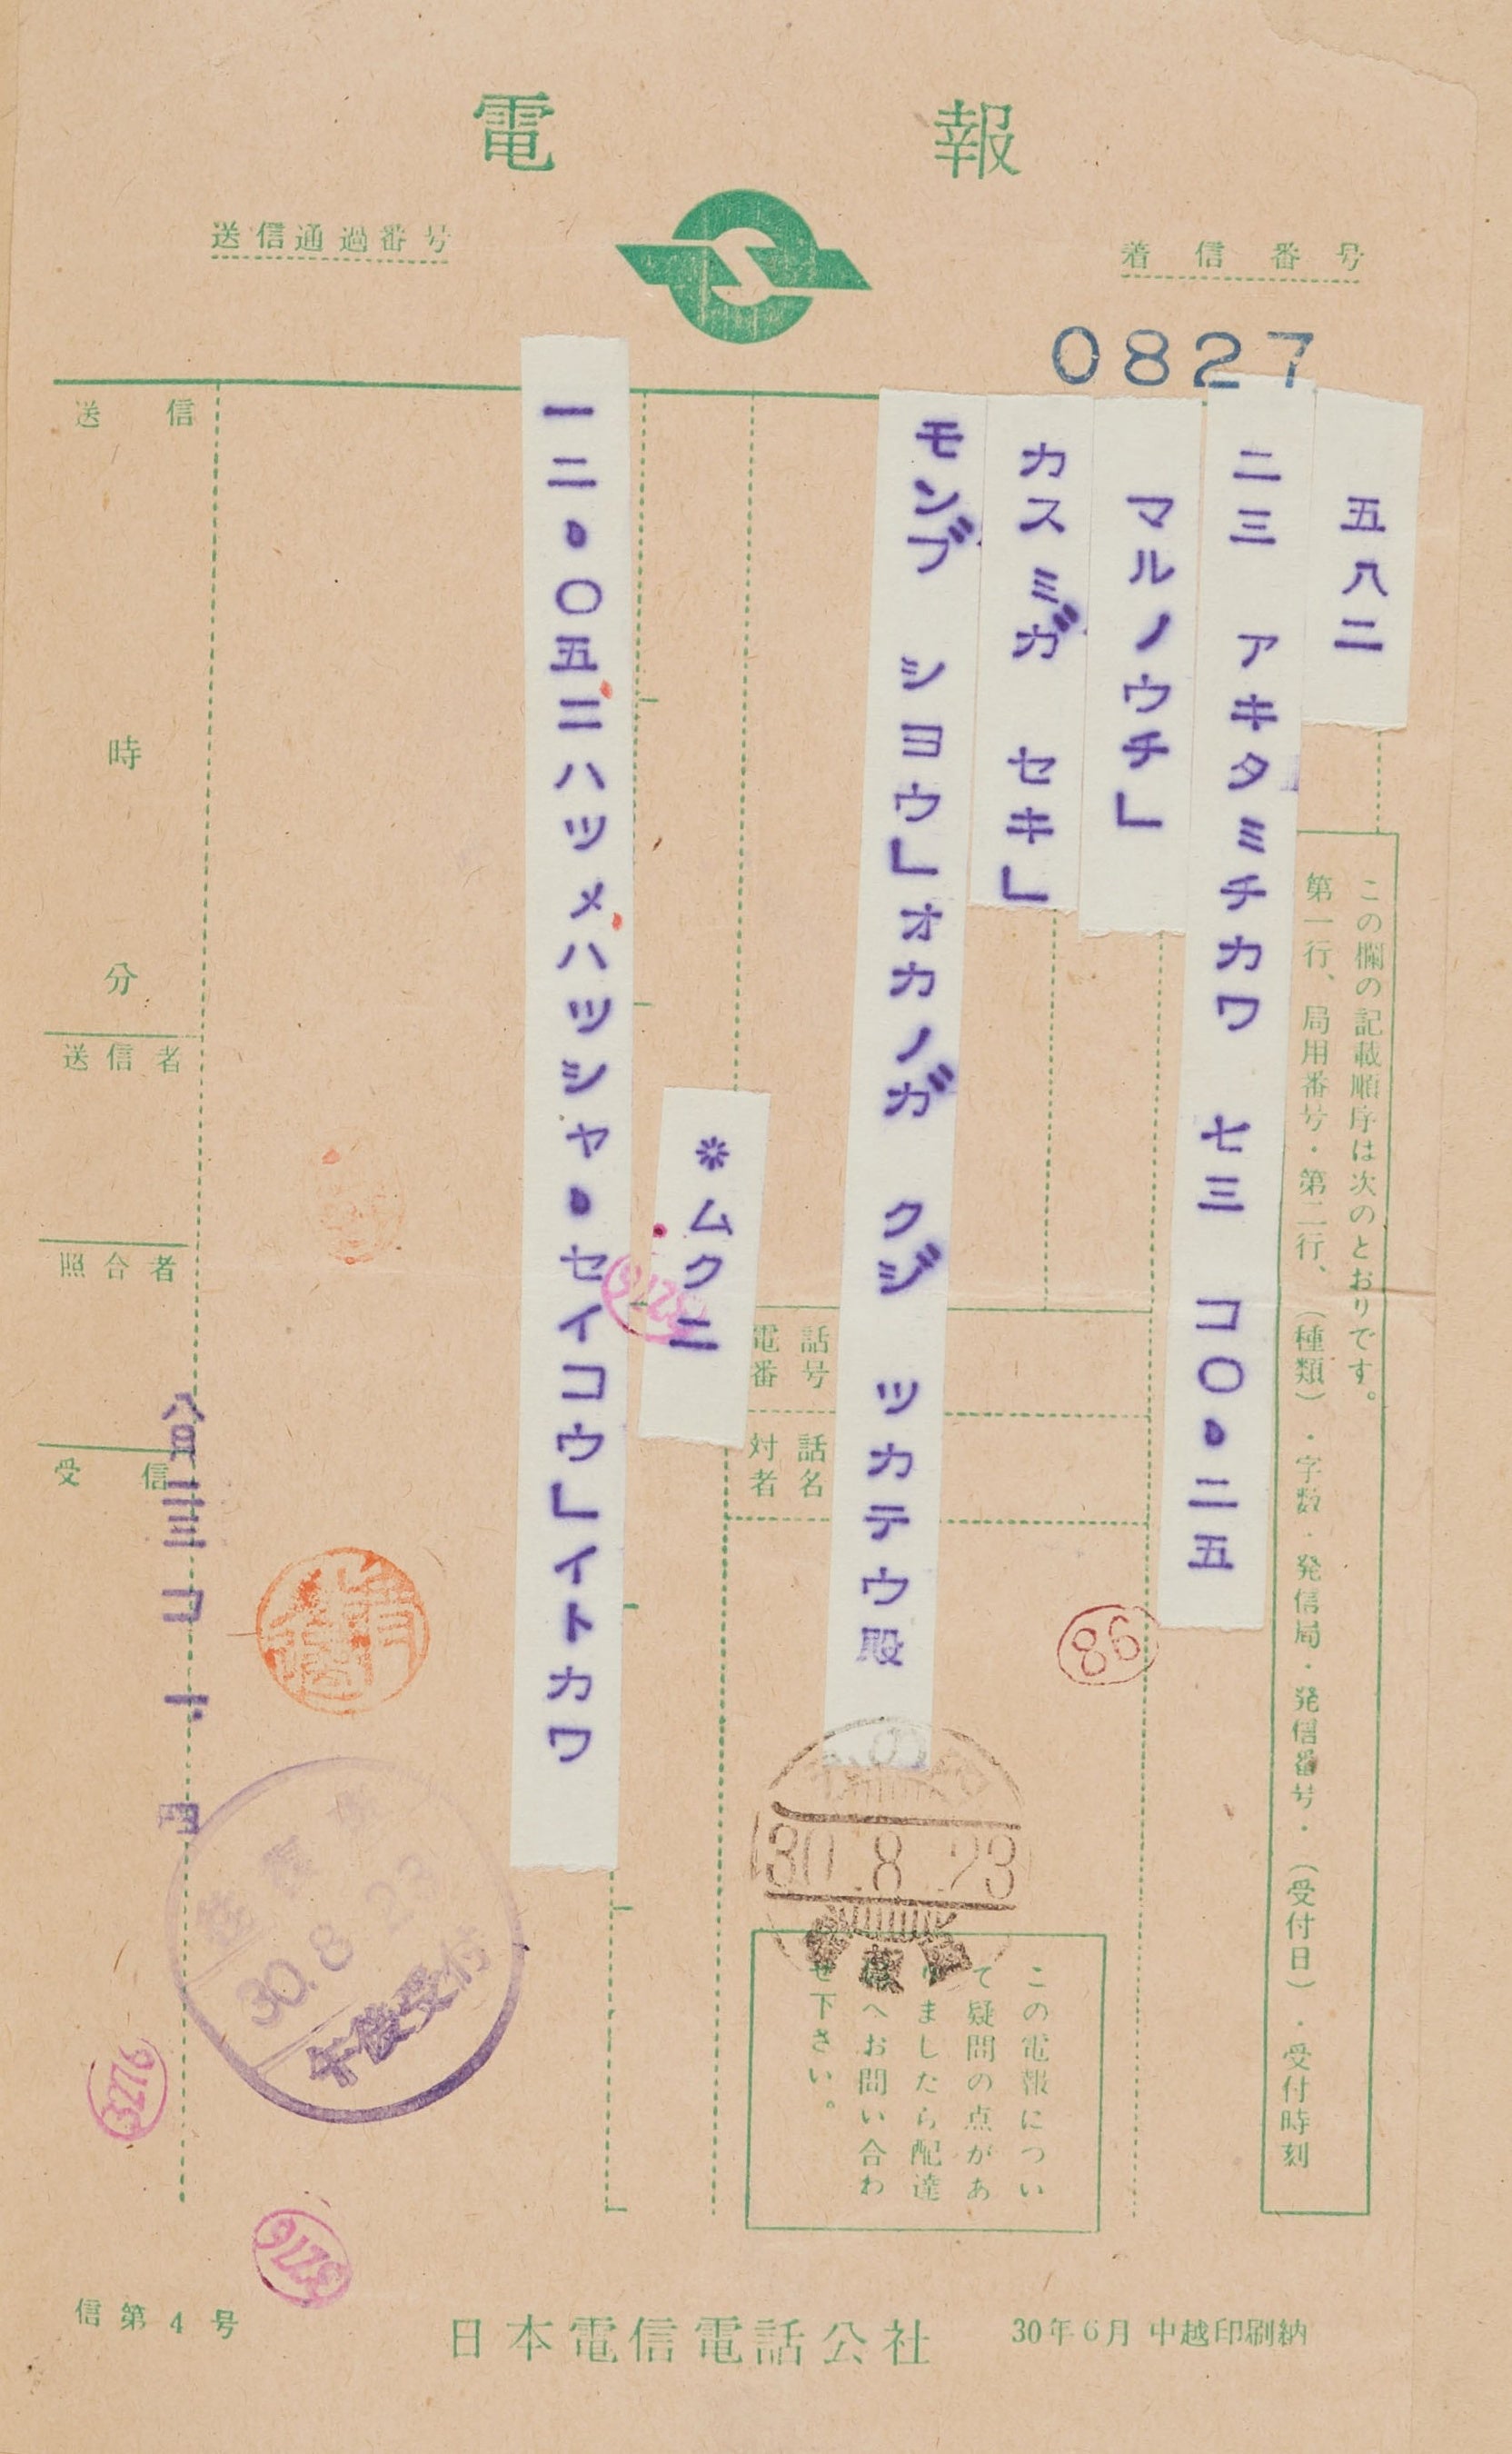 電報
送信通過番号
着信番号
0827
五八二
二三 アキタミチカワ 七三 コ〇、二五
マルノウチ」
カスミガ セキ」
モンブ シヨウ」オカノガ クジ ツカテウ殿
*ムクニ
一二、〇五ニハツメハツシヤ、セイコウ」イトカワ
この欄の記載順序は次のとおりです。
第一行、局用番号・第二行、(種類)・字数・発信局・発信番号・(受付日)・受付時刻
電話番号
対話者名
86
30.8.23
この電報につい
て疑問の点があ
りましたら配達
へお問い合わ
せ下さい。
送信
時
分
送信者
照合者
受信
30.8.23
午後受付
3276
3276
3276
信第4号
日本電信電話公社
30年6月 中越印刷納